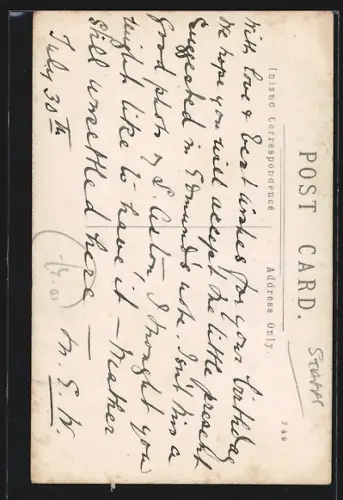 POST CARD.
Inland Correspondence
Address Only.
With love & best wishes for your birthday
We hope you will accept the little present
suggested in Edmund's note. Isn't this a
good photo of L. I thought you
might like to have it — Weather
still unsettled here —
July 30th
M. E. W.
749